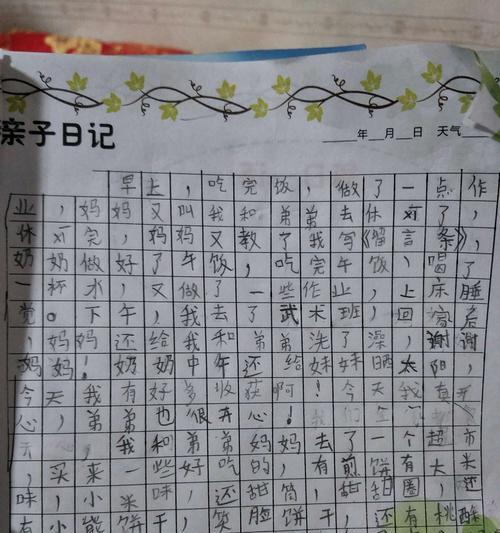 亲子日记
年 月 日 天气
早上，吃完饭，做了一点作
业，妈妈又叫我和弟弟去休对了，
休对完，妈妈又教了我写《留言条》，
奶奶做好了午饭，吃完午饭，喝了
一杯水，又做了一些作业，上床睡
觉。下午，我去了武术班，回家后
，妈妈还给我和弟弟洗了澡，谢谢
妈妈！奶奶中午还给妹妹晒太阳，
今天我有好多收获啊！今天我真开
心，弟弟也很开心！
天，我和弟弟妈妈去了一个超市
，买来一些好吃的，有煎饼有大米
味，小米味，还甜筒，甜甜圈，还
有小熊饼干，笑脸饼干，还有桃酥